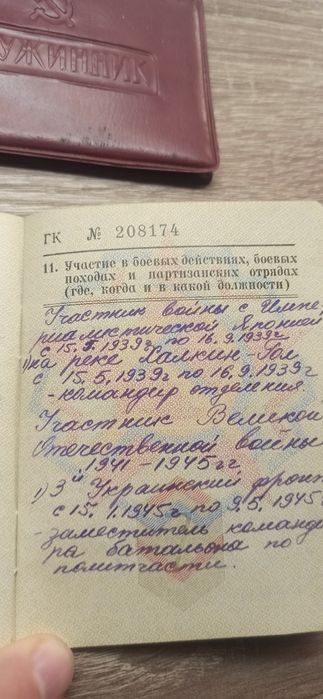 ДРУЖИННИК
ГК № 208174
11. Участие в боевых действиях, боевых
походах и партизанских отрядах
(где, когда и в какой должности)
Участник войны с Импе-
риалистической Японией
с 15.5.1939г по 16.9.1939г
1) на реке Халкин-Гол
с 15.5.1939г по 16.9.1939г
- командир отделения.
Участник Великой
Отечественной войны
1941-1945гг
1) 3й Украинский фронт
с 15.1.1945г по 9.5.1945
- заместитель команди-
ра батальона по
политчасти.